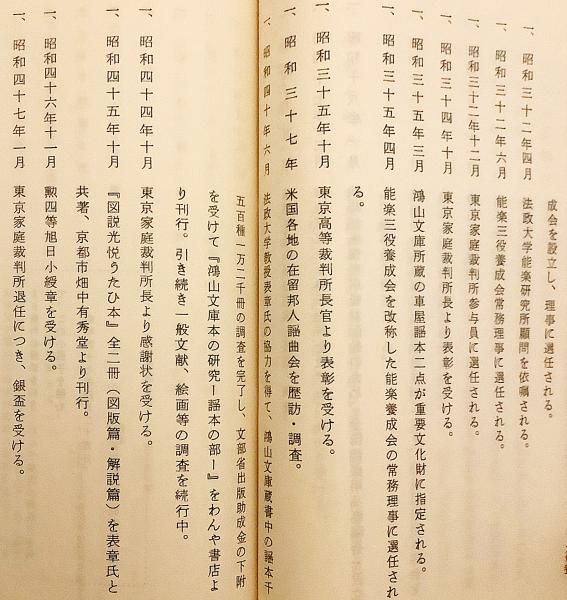 成会を設立し、理事に選任される。
一、昭和三十二年四月 法政大学能楽研究所顧問を依嘱される。
一、昭和三十二年六月 能楽三役養成会常務理事に選任される。
一、昭和三十二年十二月 東京家庭裁判所参与員に選任される。
一、昭和三十四年十月 東京家庭裁判所長より表彰を受ける。
一、昭和三十五年三月 鴻山文庫所蔵の車屋謡本二点が重要文化財に指定される。
一、昭和三十五年四月 能楽三役養成会を改称した能楽養成会の常務理事に選任され
る。
一、昭和三十五年十月 東京高等裁判所長官より表彰を受ける。
一、昭和三十七年 米国各地の在留邦人謡曲会を歴訪・調査。
一、昭和四十年六月 法政大学教授表章氏の協力を得て、鴻山文庫蔵書中の謡本千
五百種一万二千冊の調査を完了し、文部省出版助成金の下附
を受けて『鴻山文庫本の研究ー謡本の部ー』をわんや書店よ
り刊行。引き続き一般文献、絵画等の調査を続行中。
一、昭和四十四年十月 東京家庭裁判所長より感謝状を受ける。
一、昭和四十五年十月 『図説光悦うたひ本』全二冊（図版篇・解説篇）を表章氏と
共著、京都市畑中有秀堂より刊行。
一、昭和四十六年十一月 勲四等旭日小綬章を受ける。
一、昭和四十七年一月 東京家庭裁判所退任につき、銀盃を受ける。